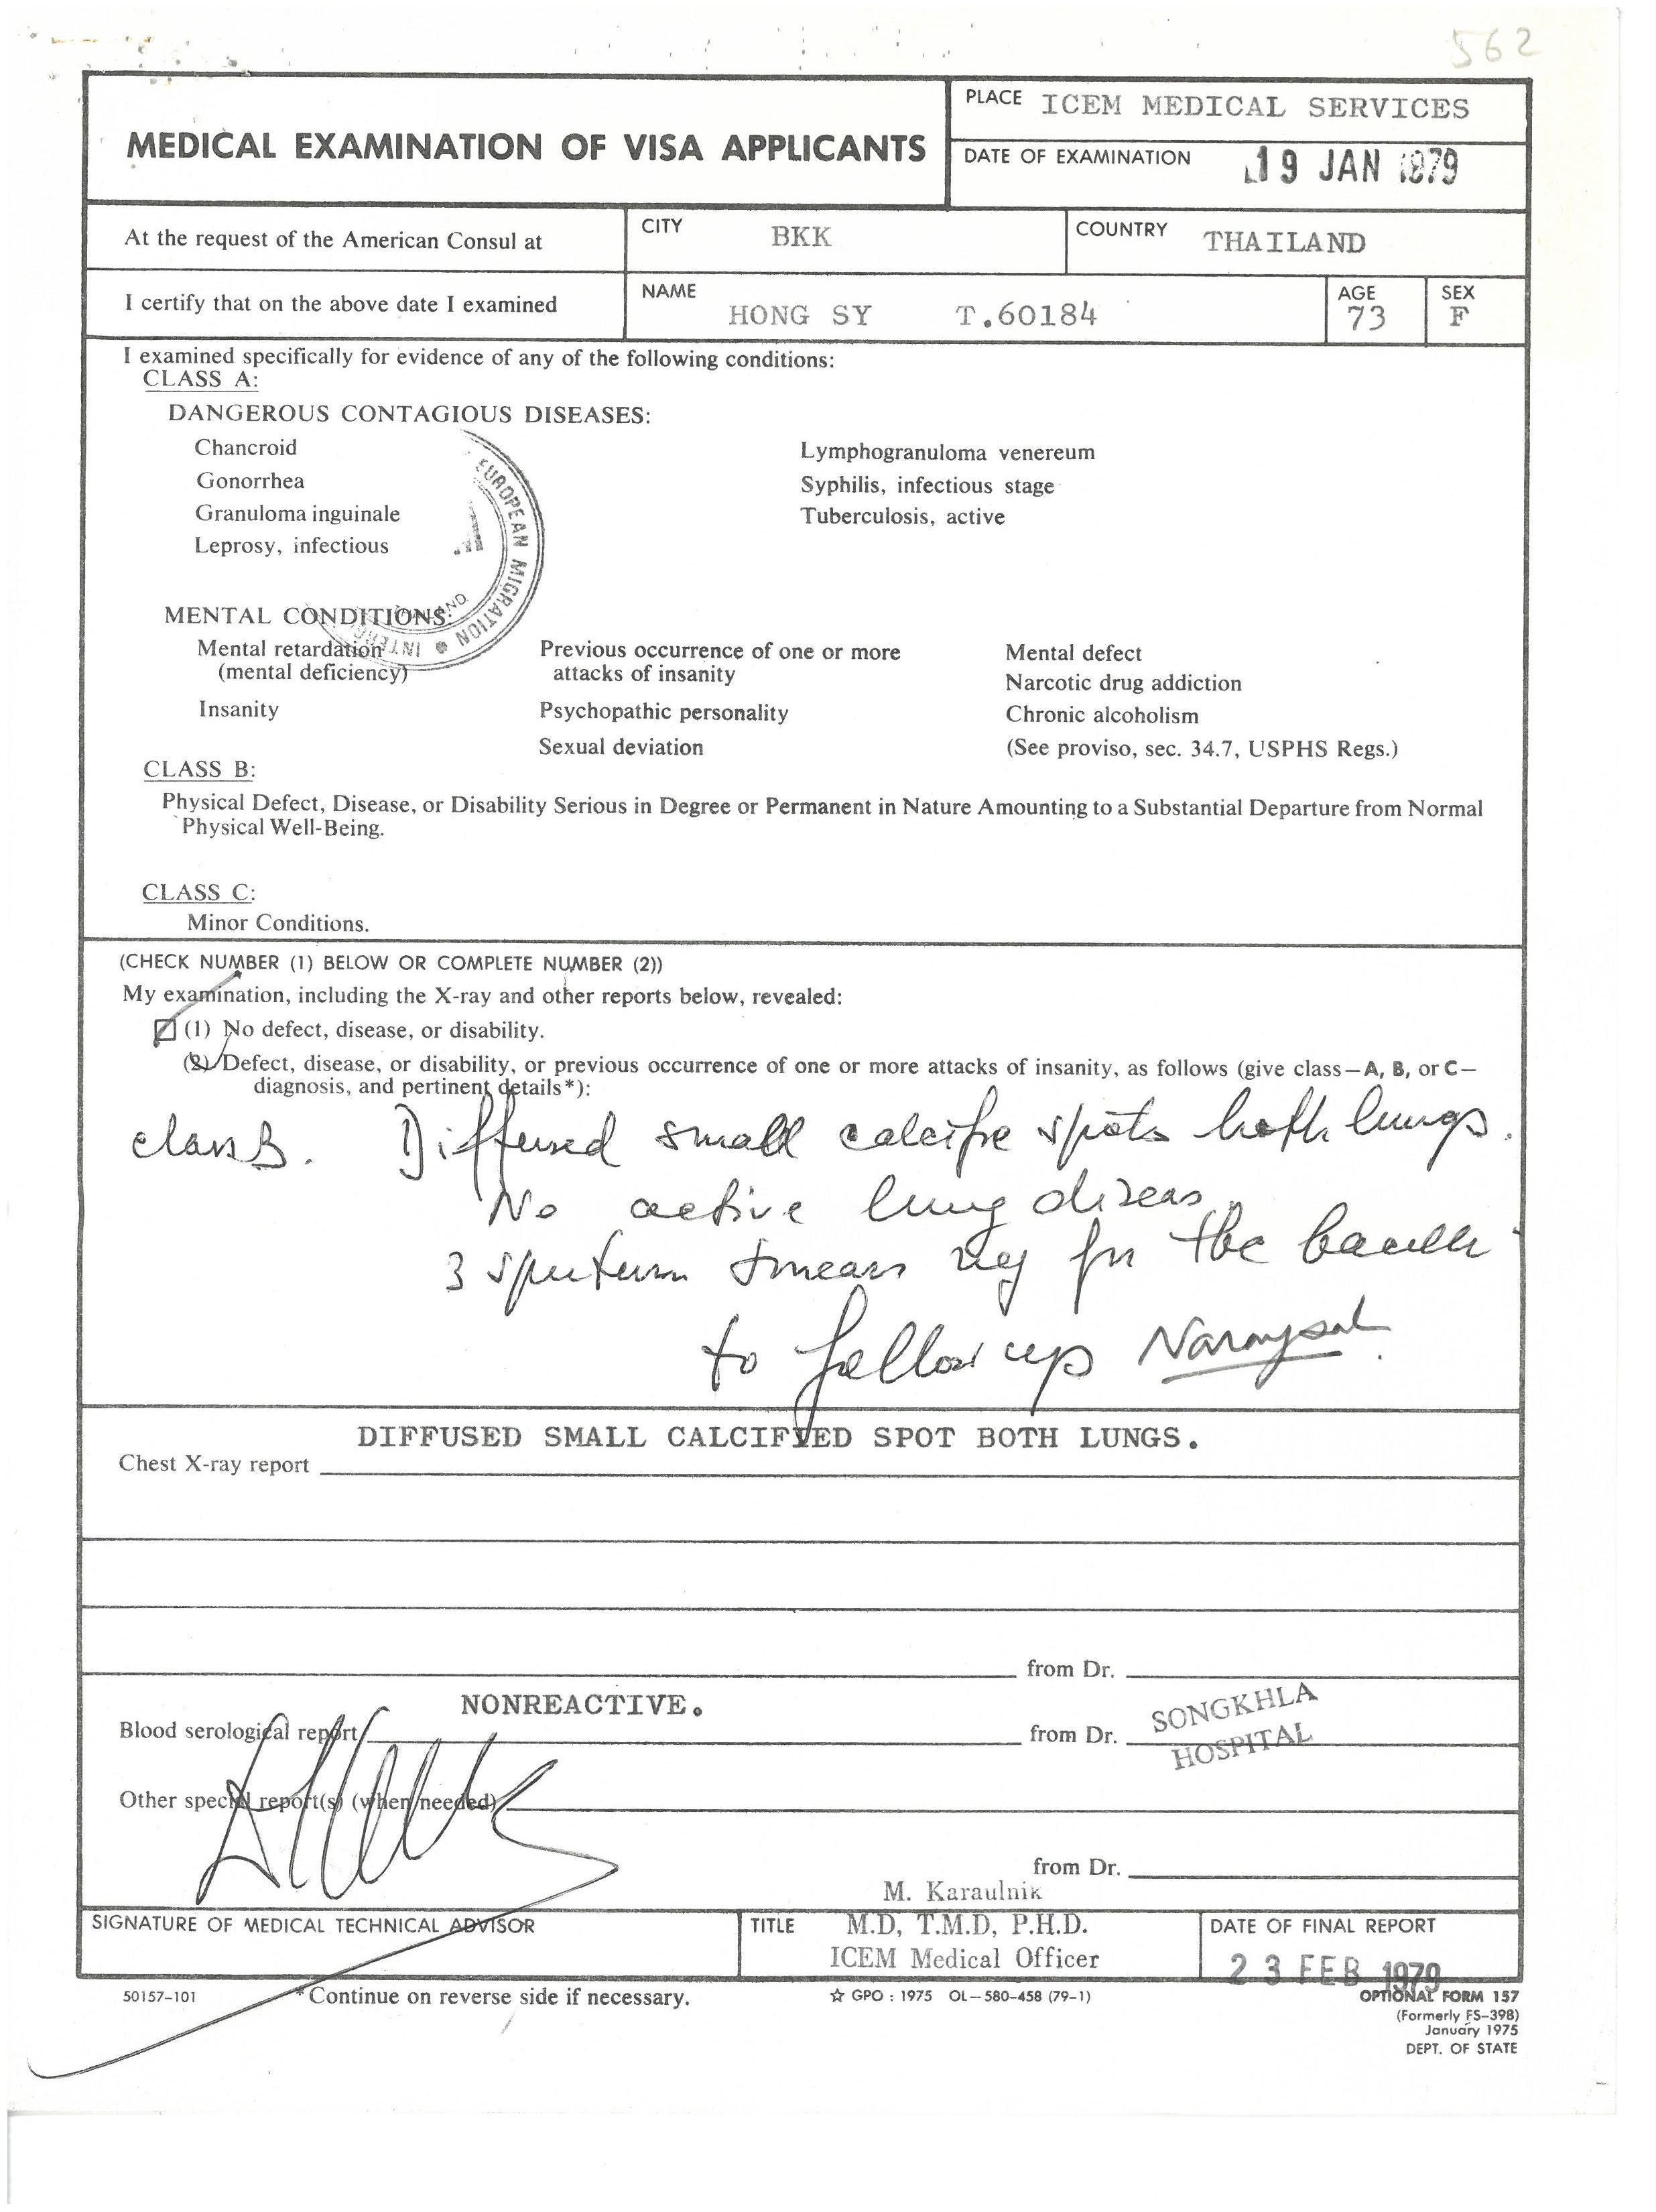 562
MEDICAL EXAMINATION OF VISA APPLICANTS
PLACE ICEM MEDICAL SERVICES
DATE OF EXAMINATION 19 JAN 1979
At the request of the American Consul at
CITY BKK
COUNTRY THAILAND
I certify that on the above date I examined
NAME HONG SY T.60184
AGE 73
SEX F
I examined specifically for evidence of any of the following conditions:
CLASS A:
DANGEROUS CONTAGIOUS DISEASES:
Chancroid
Gonorrhea
Granuloma inguinale
Leprosy, infectious
Lymphogranuloma venereum
Syphilis, infectious stage
Tuberculosis, active
EUROPEAN MIGRATION
MENTAL CONDITIONS:
Mental retardation
(mental deficiency)
Insanity
Previous occurrence of one or more
attacks of insanity
Psychopathic personality
Sexual deviation
Mental defect
Narcotic drug addiction
Chronic alcoholism
(See proviso, sec. 34.7, USPHS Regs.)
CLASS B:
Physical Defect, Disease, or Disability Serious in Degree or Permanent in Nature Amounting to a Substantial Departure from Normal
Physical Well-Being.
CLASS C:
Minor Conditions.
(CHECK NUMBER (1) BELOW OR COMPLETE NUMBER (2))
My examination, including the X-ray and other reports below, revealed:
(1) No defect, disease, or disability.
(2) Defect, disease, or disability, or previous occurrence of one or more attacks of insanity, as follows (give class—A, B, or C—
diagnosis, and pertinent details*):
class B. Diffused small spots both lungs.
No active lung diseas
3 sputum smears neg for tbc
to follow up
DIFFUSED SMALL CALCIFIED SPOT BOTH LUNGS.
Chest X-ray report
from Dr.
NONREACTIVE.
Blood serological report
from Dr. SONGKHLA
HOSPITAL
Other special report(s) (when needed)
from Dr.
M. Karaulnik
SIGNATURE OF MEDICAL TECHNICAL ADVISOR
TITLE M.D, T.M.D, P.H.D.
ICEM Medical Officer
DATE OF FINAL REPORT
23 FEB 1979
50157-101
*Continue on reverse side if necessary.
☆ GPO : 1975 OL—580-458 (79-1)
OPTIONAL FORM 157
(Formerly FS-398)
January 1975
DEPT. OF STATE